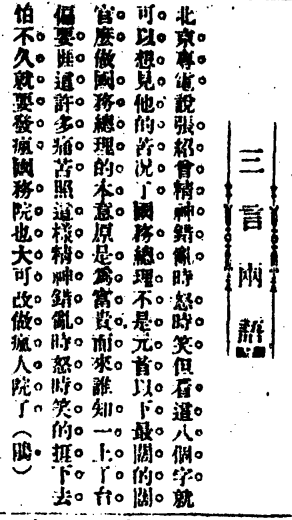 三言兩語
北京專電說張紹曾精神錯亂時怒時笑但看這八個字就
可以想見他的苦况了國務總理不是元首以下最闊的闊
官麽做國務總理的本意原是爲富貴而來誰知一上了台
偏要匯這許多痛苦照這樣精神錯亂時怒時笑的挺下去
怕不久就要發瘋國務院也大可改做瘋人院了（鵑）